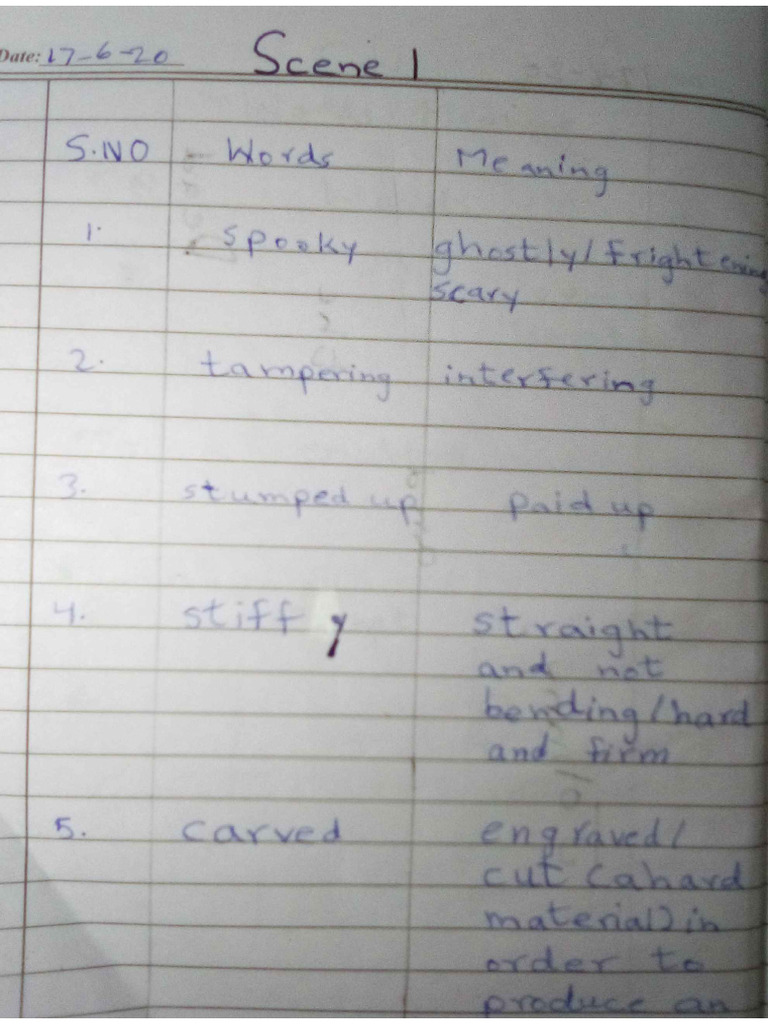 Date: 17-6-20 Scene 1
S.NO Words Meaning
1. spooky ghostly/frightening
scary
2. tampering interfering
3. stumped up paid up
4. stiff y straight
and not
bending/hard
and firm
5. carved engraved/
cut (a hard
material) in
order to
produce an